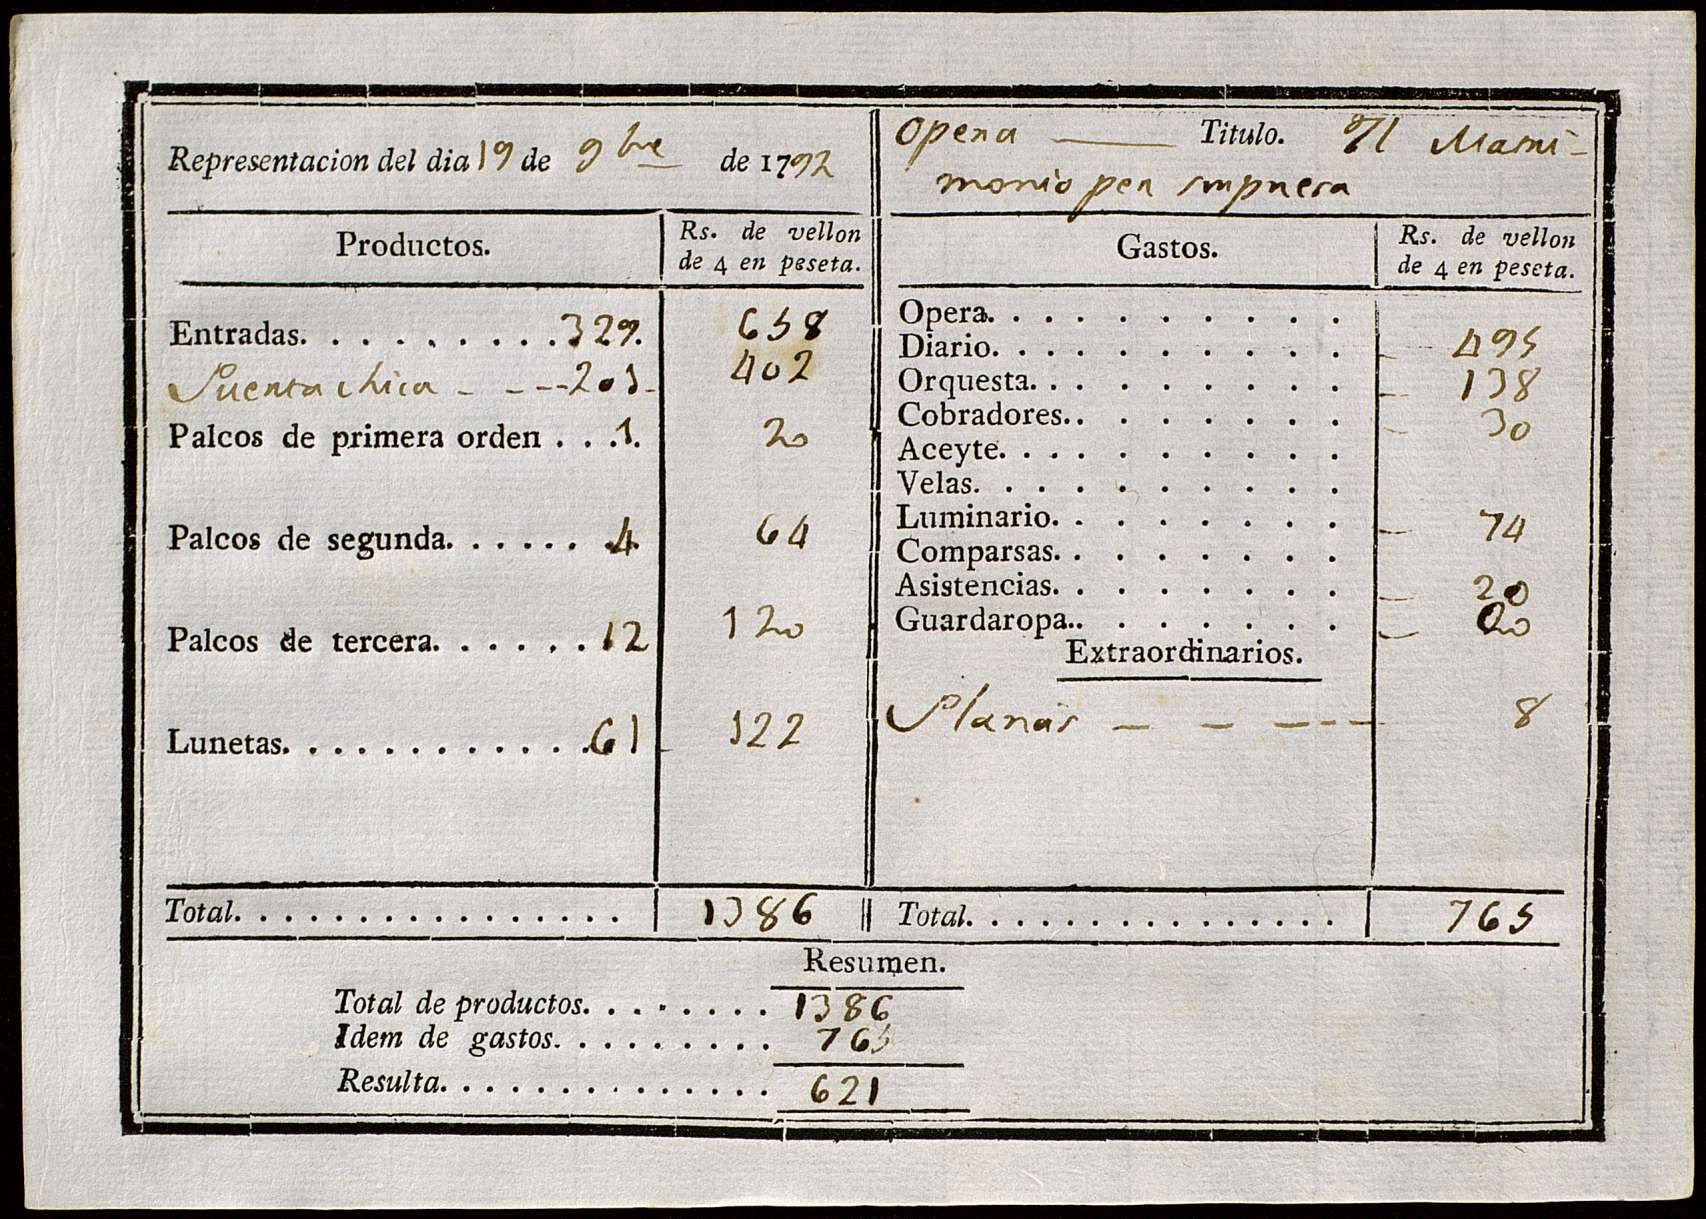 Representacion del dia 19 de 9bre de 1792
Opera Titulo. Il Matri-
monio per sorpresa
Productos. Rs. de vellon
de 4 en peseta.
Entradas. 329. 658
Puerta chica 201 402
Palcos de primera orden 1. 20
Palcos de segunda. 4 64
Palcos de tercera. 12 120
Lunetas. 61 122
Total. 1386
Gastos. Rs. de vellon
de 4 en peseta.
Opera.
Diario. 495
Orquesta. 138
Cobradores. 30
Aceyte.
Velas.
Luminario. 74
Comparsas.
Asistencias. 20
Guardaropa. 20
Extraordinarios.
Planas 8
Total. 765
Resumen.
Total de productos. 1386
Idem de gastos. 765
Resulta. 621